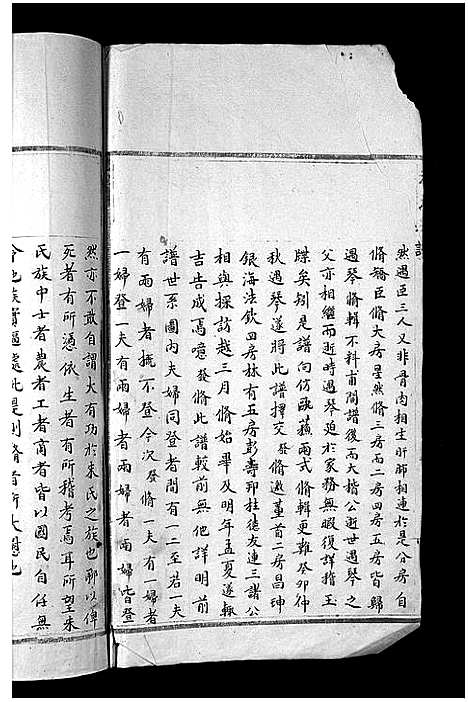 然遇臣三人又非骨肉相生肝肺相連於是分房自
脩矯臣脩大房星然脩三房而二房四房五房皆歸
遇琴脩輯不料甫閱譜後而大楷公逝世遇琴之
父亦相繼而逝時遇琴迫於家務無暇復詳指玉
牒矣矧是譜向仿歐蘓兩式脩輯更難癸卯仲
秋遇琴遂將此譜擇交發脩邀董首二房昌珅
銀海法欽四房林有五房彭壽卭拄德友連三諸公
相與採訪越三月脩始畢及明年孟夏遂輙
吉告成焉噫發脩此譜較前無他詳明前
譜世系圖內夫婦同登者間有一二至若一夫
有兩婦者概不登今次發脩一夫有一婦者
一婦登一夫有兩婦者兩婦者兩婦皆登
然亦不敢自謂大有功於朱氏之族也聊以俾
死者有所憑依生者有所稽考焉耳所望朱
民族中士者農者工者商者皆以國民自任無
令他族實逼處此是則脩者所大慰也